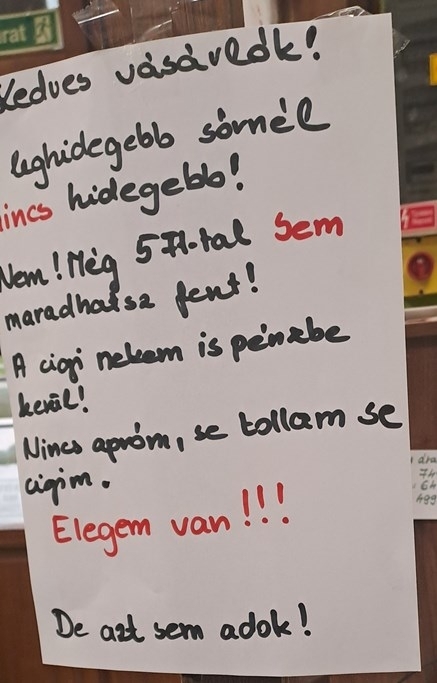 Kedves vásárlók!
leghidegebb sörnél
nincs hidegebb!
Nem! Még 5 Ft-tal Sem
maradhatsz fent!
A cigi nekem is pénzbe
kerül!
Nincs apróm, se tollam se
cigim.
Elegem van!!!
De azt sem adok!